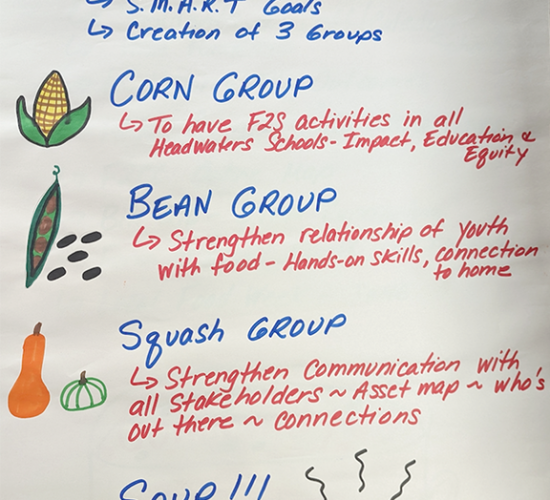 ↳ S.M.A.R.T Goals
↳ Creation of 3 Groups
CORN GROUP
↳ To have F2S activities in all
Headwaters Schools - Impact, Education &
Equity
BEAN GROUP
↳ Strengthen relationship of youth
with food - Hands-on skills, connection
to home
Squash GROUP
↳ Strengthen Communication with
all Stakeholders ~ Asset map ~ who's
out there ~ connections
SOUP!!!